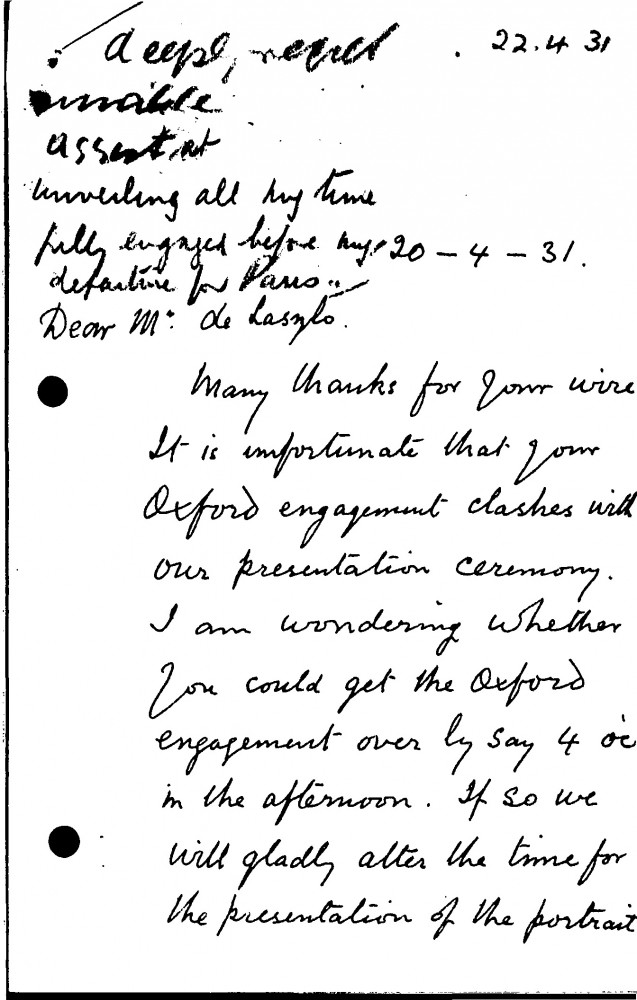 deeply regret . 22.4 31
unable
assist at
unveiling all my time
fully engaged before my 20 - 4 - 31.
departure for Paris..
Dear Mr. de Laszlo.
Many thanks for your wire
It is unfortunate that your
Oxford engagement clashes with
our presentation ceremony.
I am wondering whether
you could get the Oxford
engagement over by say 4 oc
in the afternoon. If so we
will gladly alter the time for
the presentation of the portrait